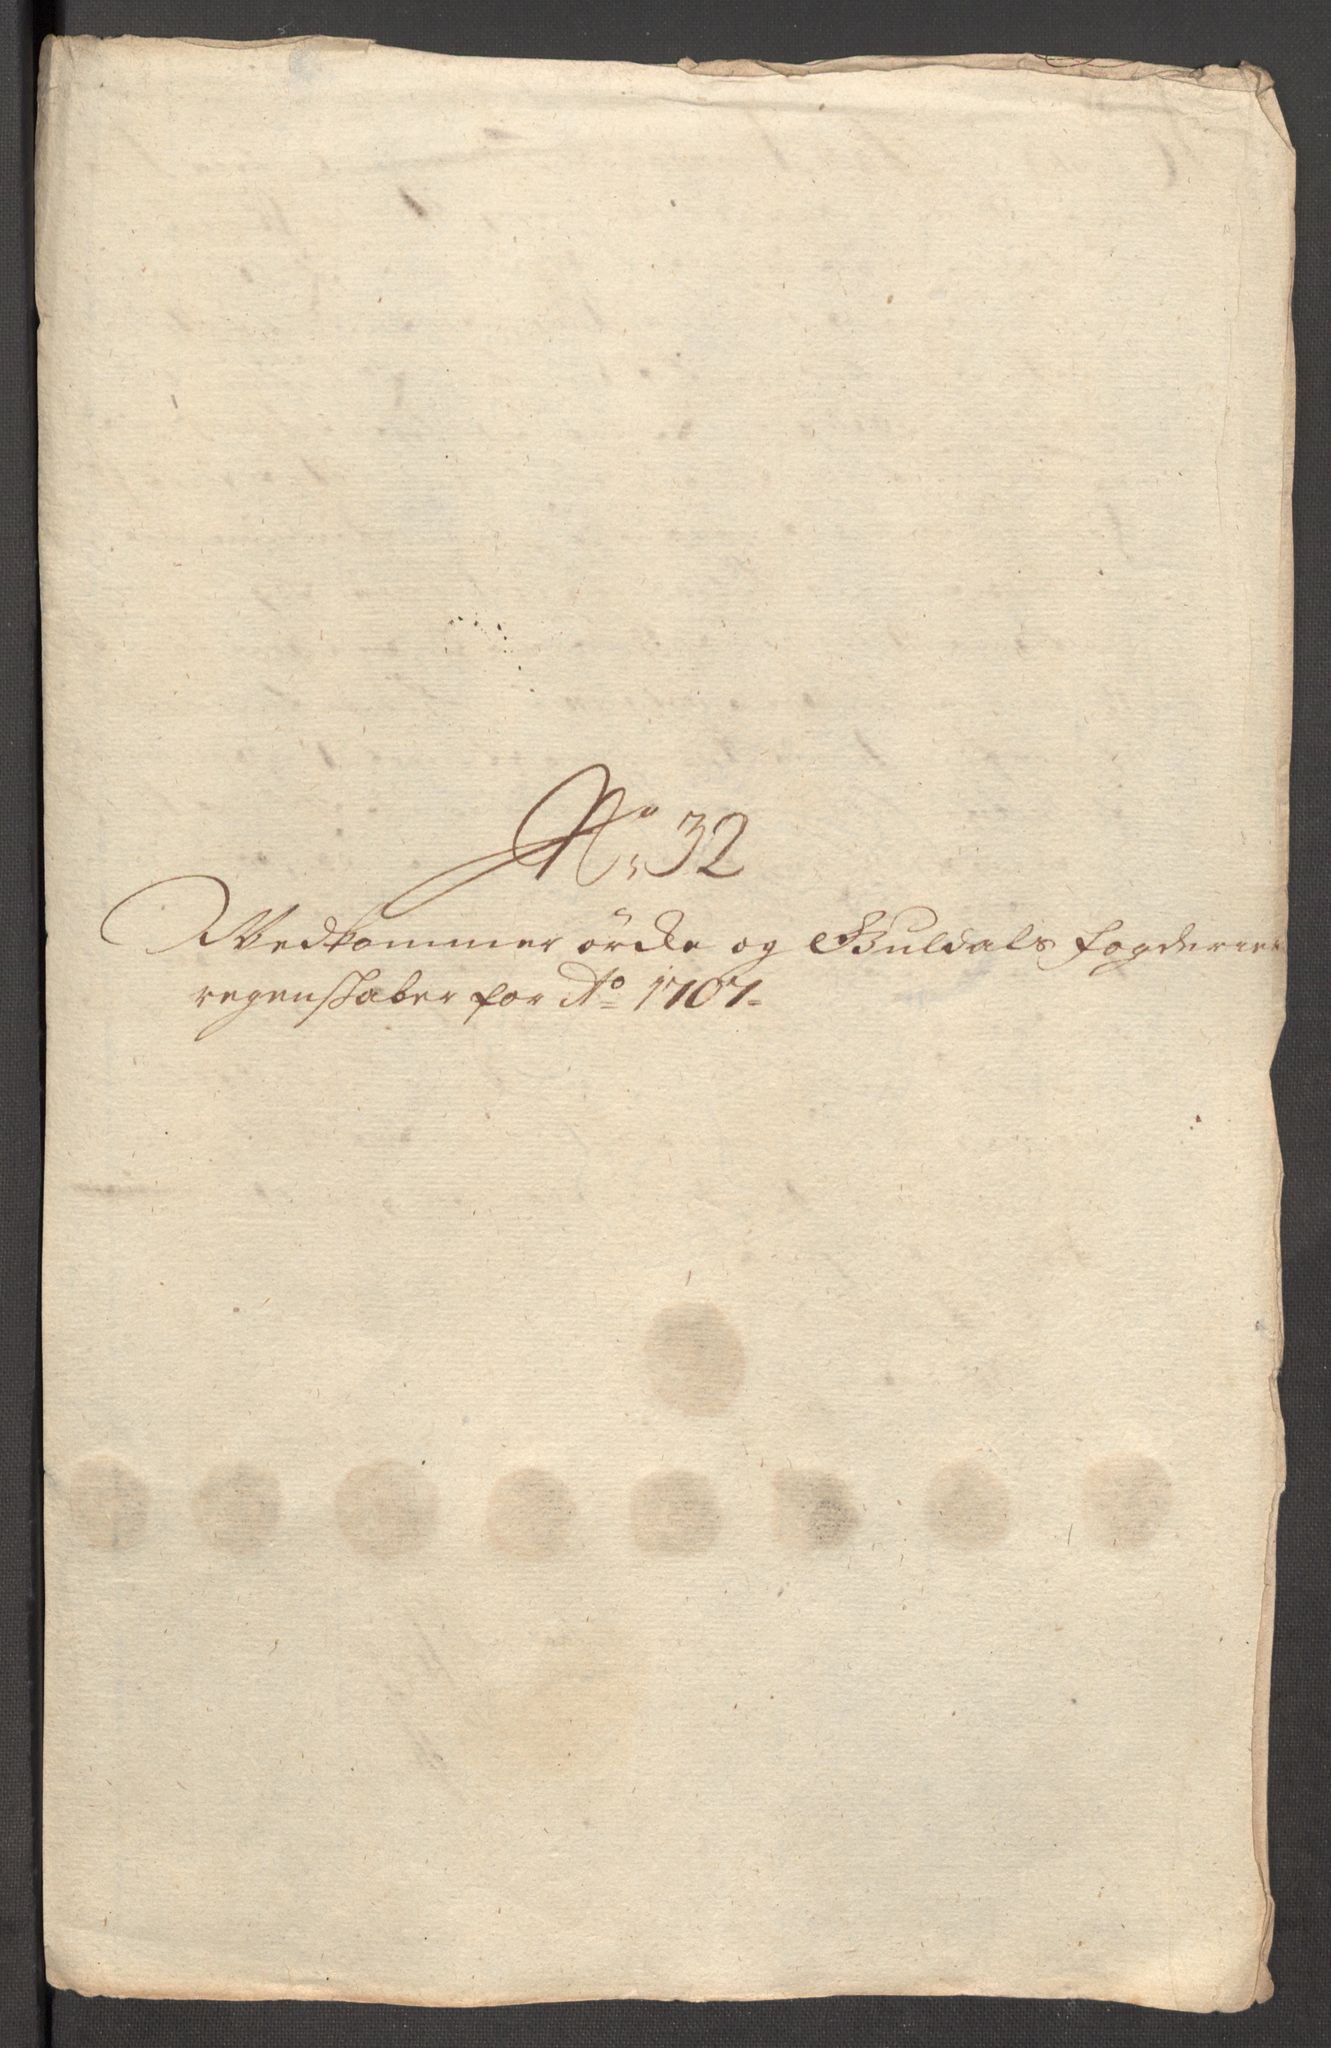 No. 32
Vedkommer ørcke og Guldals fogderier
regenskaber for Ao 1707.